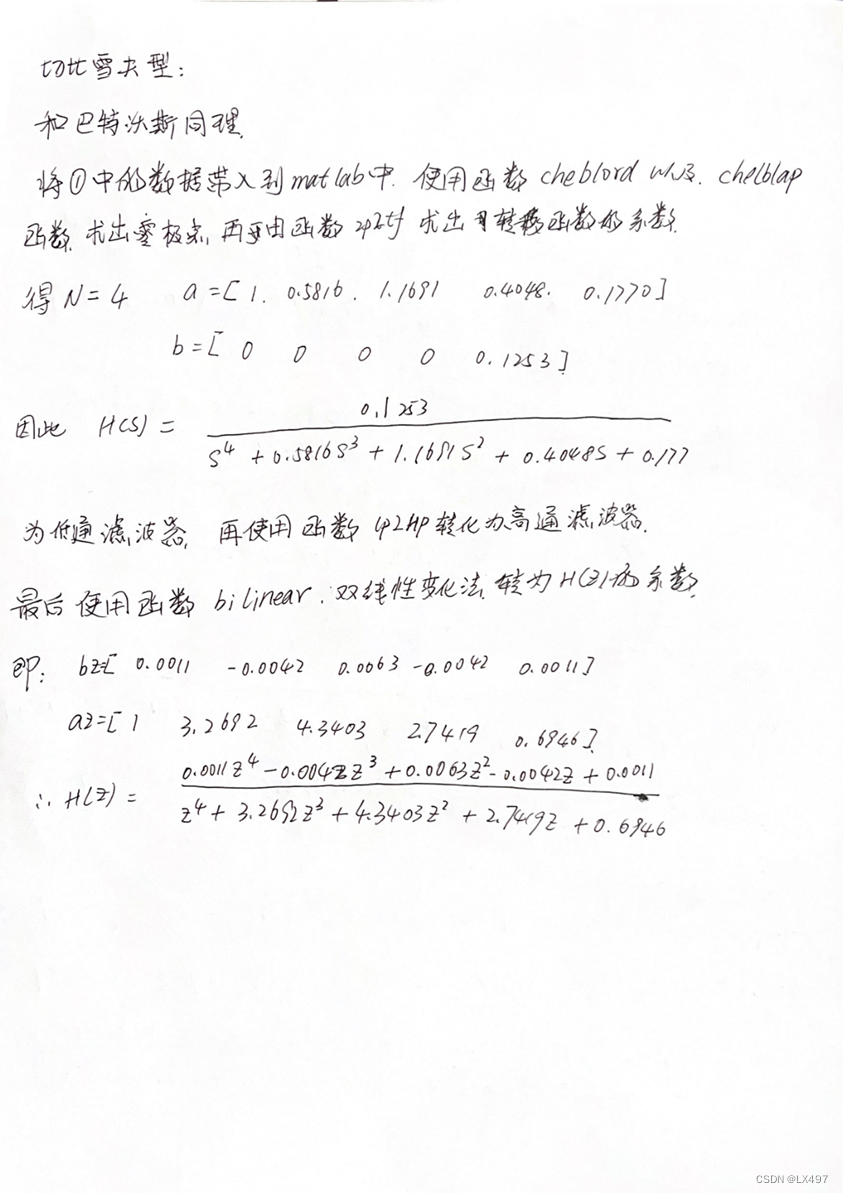 切比雪夫型:
和巴特沃斯同理.
将①中的数据带入到matlab中. 使用函数 cheb1ord 以及. che1b1ap
函数, 求出零极点, 再由函数 zp2tf 求出转移函数的系数.
得 N=4 a=[1. 0.5816. 1.1691 0.4048. 0.1770]
b=[ 0 0 0 0 0.1253]
因此 H(S) =
0.1253
S⁴ + 0.5816S³ + 1.1691S² + 0.4048S + 0.177
为低通滤波器, 再使用函数 lp2Hp 转化为高通滤波器.
最后使用函数 bilinear. 双线性变化法, 转为H(Z)的系数.
即: bz=[ 0.0011 -0.0042 0.0063 -0.0042 0.0011]
az=[ 1 3.2692 4.3403 2.7419 0.6946].
∴ H(Z) =
0.0011Z⁴ - 0.0042Z³ + 0.0063Z² - 0.0042Z + 0.0011
Z⁴ + 3.2692Z³ + 4.3403Z² + 2.7419Z + 0.6946
CSDN @LX497